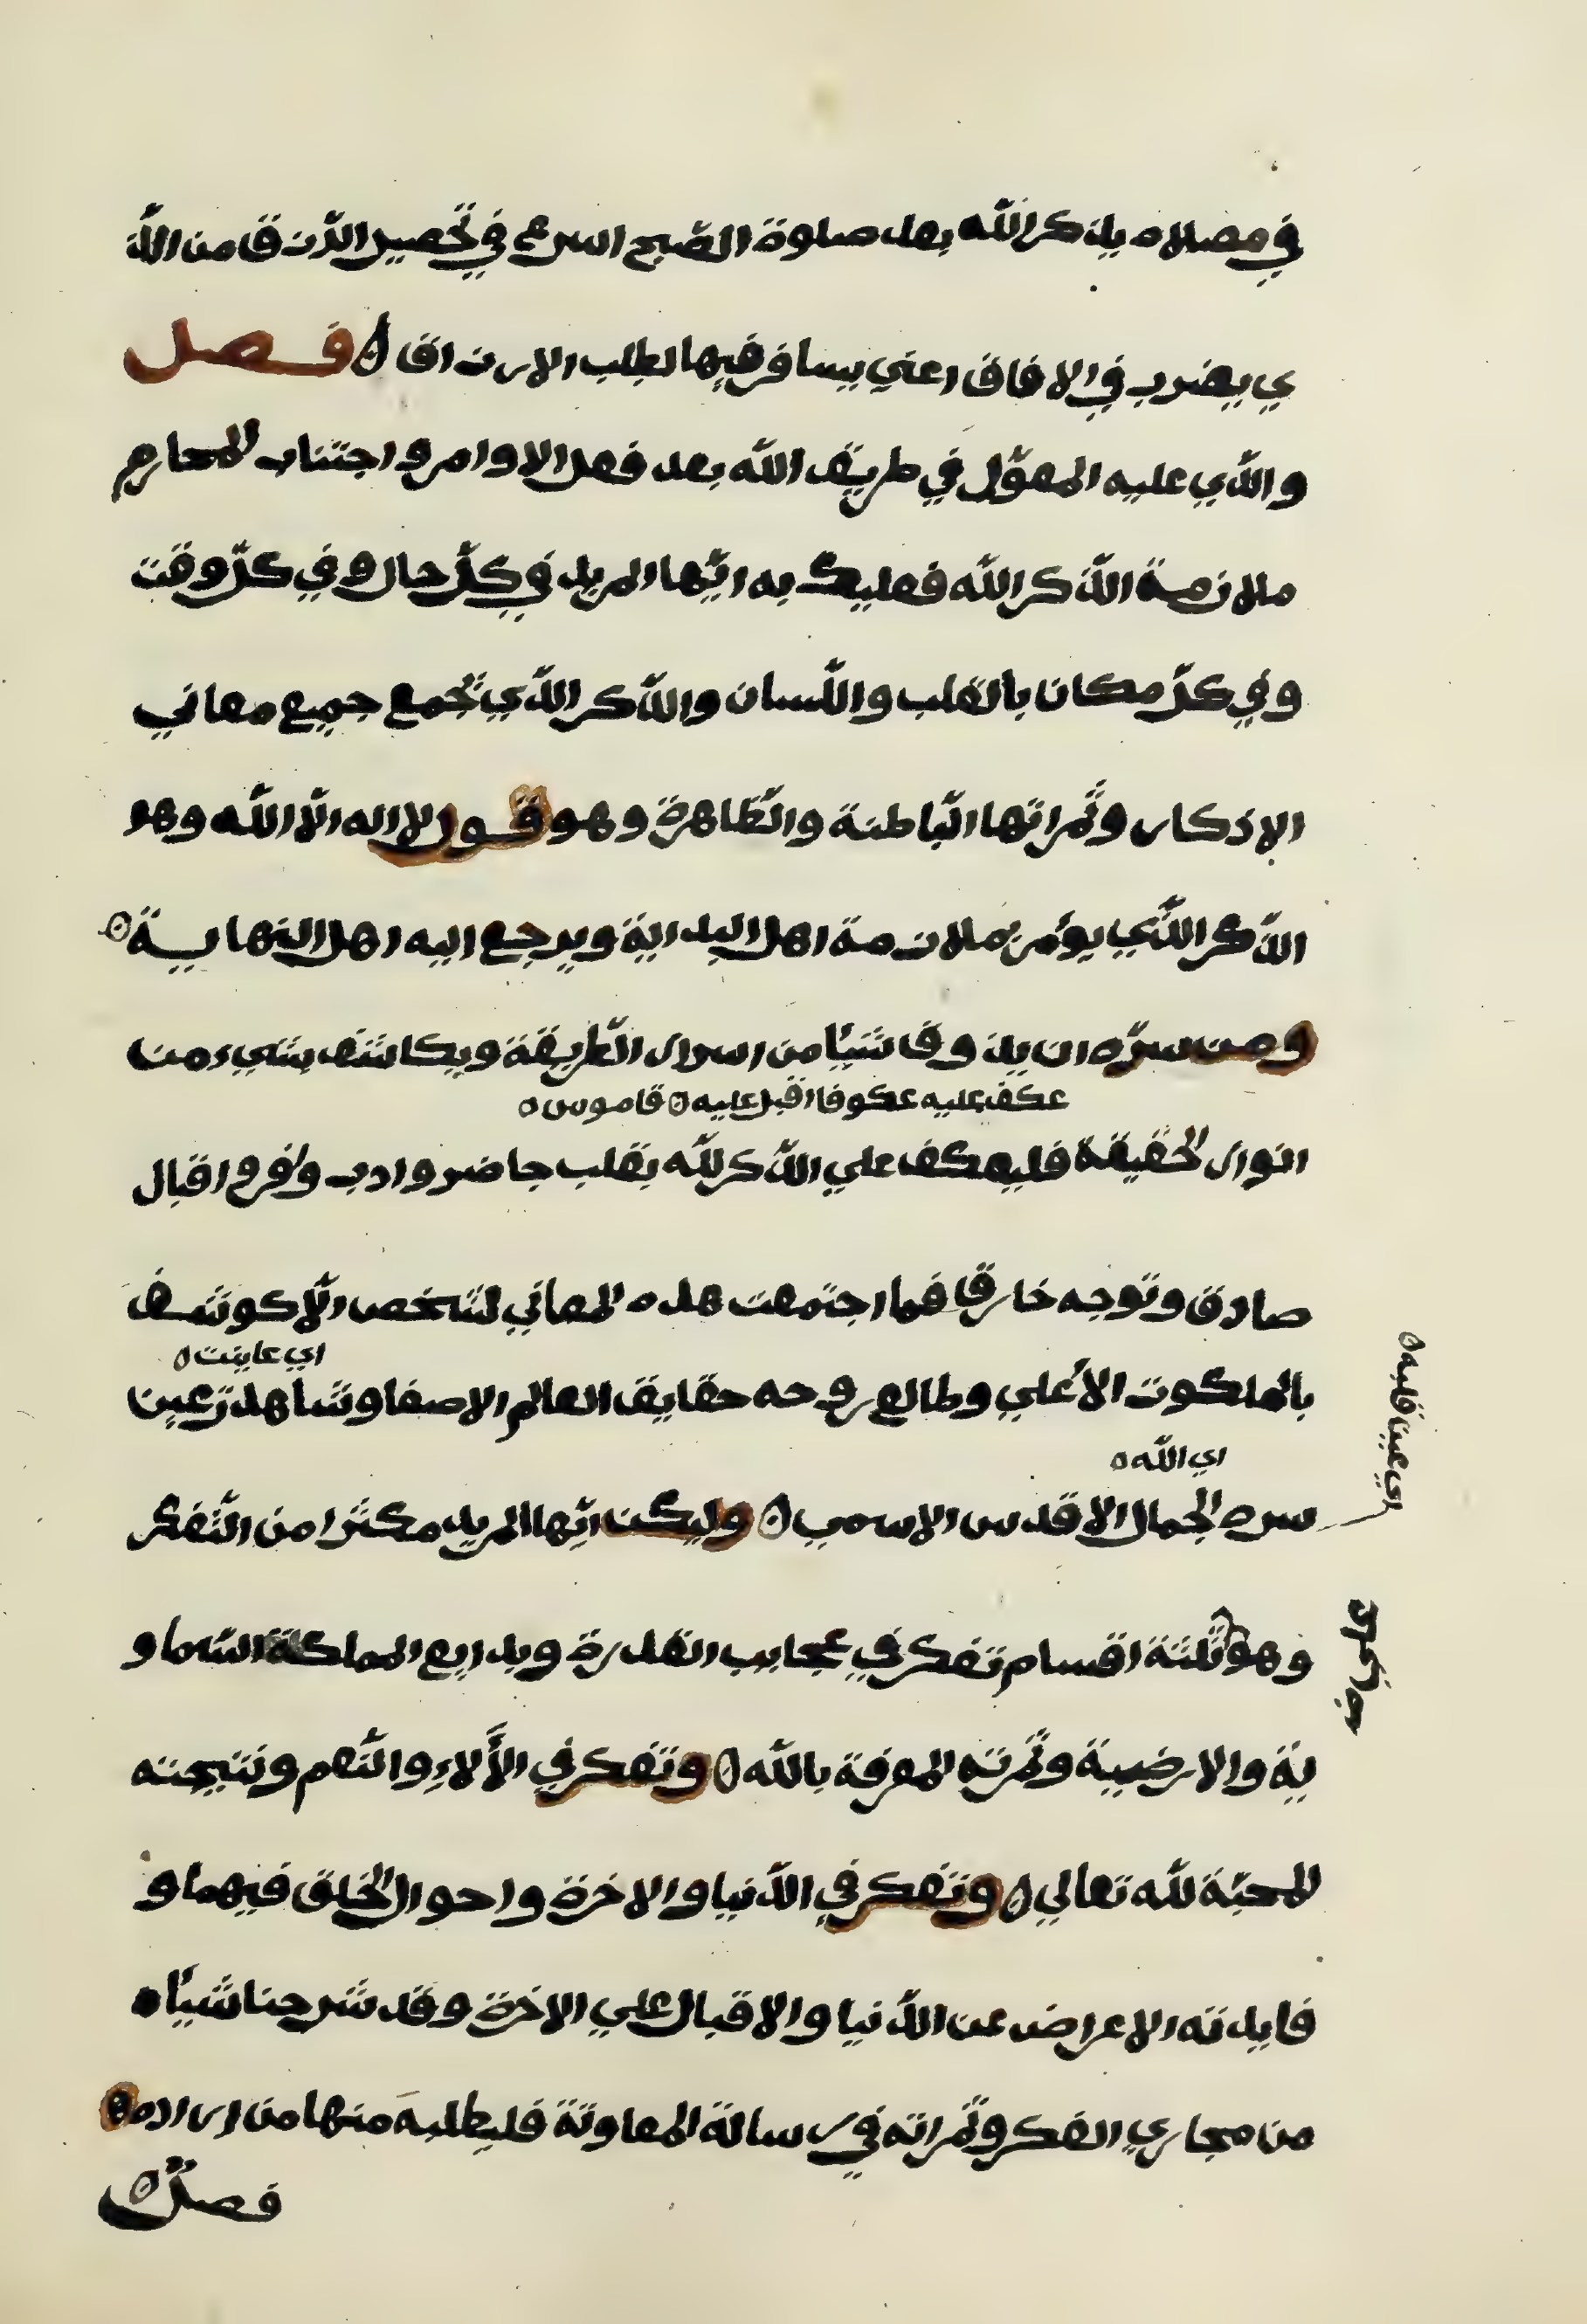 في مصلاه يذكر الله بعد صلوة الصّبح اسرع في تحصيل الرّزق من الّذ
ي يضرب في الافاق اعني يسافر فيها لطلب الارزاق ۞ فصل
والّذي عليه المعوّل في طريق الله بعد فعل الاوامر واجتناب المحارم
ملازمة الذّكر الله فعليك به ايّها المريد في كلّ حال وفي كلّ وقت
وفي كلّ مكان بالقلب واللّسان والذّكر الّذي تجمع جميع معاني
الاذكار وثمراتها البّاطنة والظّاهرة وهو قول لا اله الّا الله وهو
الذّكر الّذي يؤمر بملازمة اهل البداية ويرجع اليه اهل النهاية ۞
ومن سرّه ان يذوق شيئا من اسرار الطّريقة ويكاشف بشيء من
عكف عليه عكوفا اقبل عليه ه قاموس ه
انوار الحقيقة فليعكف علي الذّكر لله بقلب حاضر وادب وافر واقبال
صادق وتوجه خارق فما اجتمعت هذه المعاني لشخص الّا كوشف
اي عاينت ه
بالملكوت الأعلي وطالع روحه حقايق العالم الاصفا وشاهدت عين
اي عين قلبه ه
اي الله ه
سره الجمال الاقدس الاسمي ۞ وليكن ايّها المريد مكثرا من التّفكر
وهو ثلثة اقسام تفكر في عجايب القدرة وبدايع المملكة السّماو
ية والارضية وثمرته المعرفة بالله ۞ وتفكر في الألاء والنّعم ونتيجته
المحبّة لله تعالي ۞ وتفكر في الدّنيا والاخرة واحوال الخلق فيهما و
فايدته الاعراض عن الدّنيا والاقبال علي الاخرة وقد شرحنا شيئا
من مجاري الفكر وثمراته في رسالة المعاونة فليطلبه منها من اراده ۞
فصل ۞